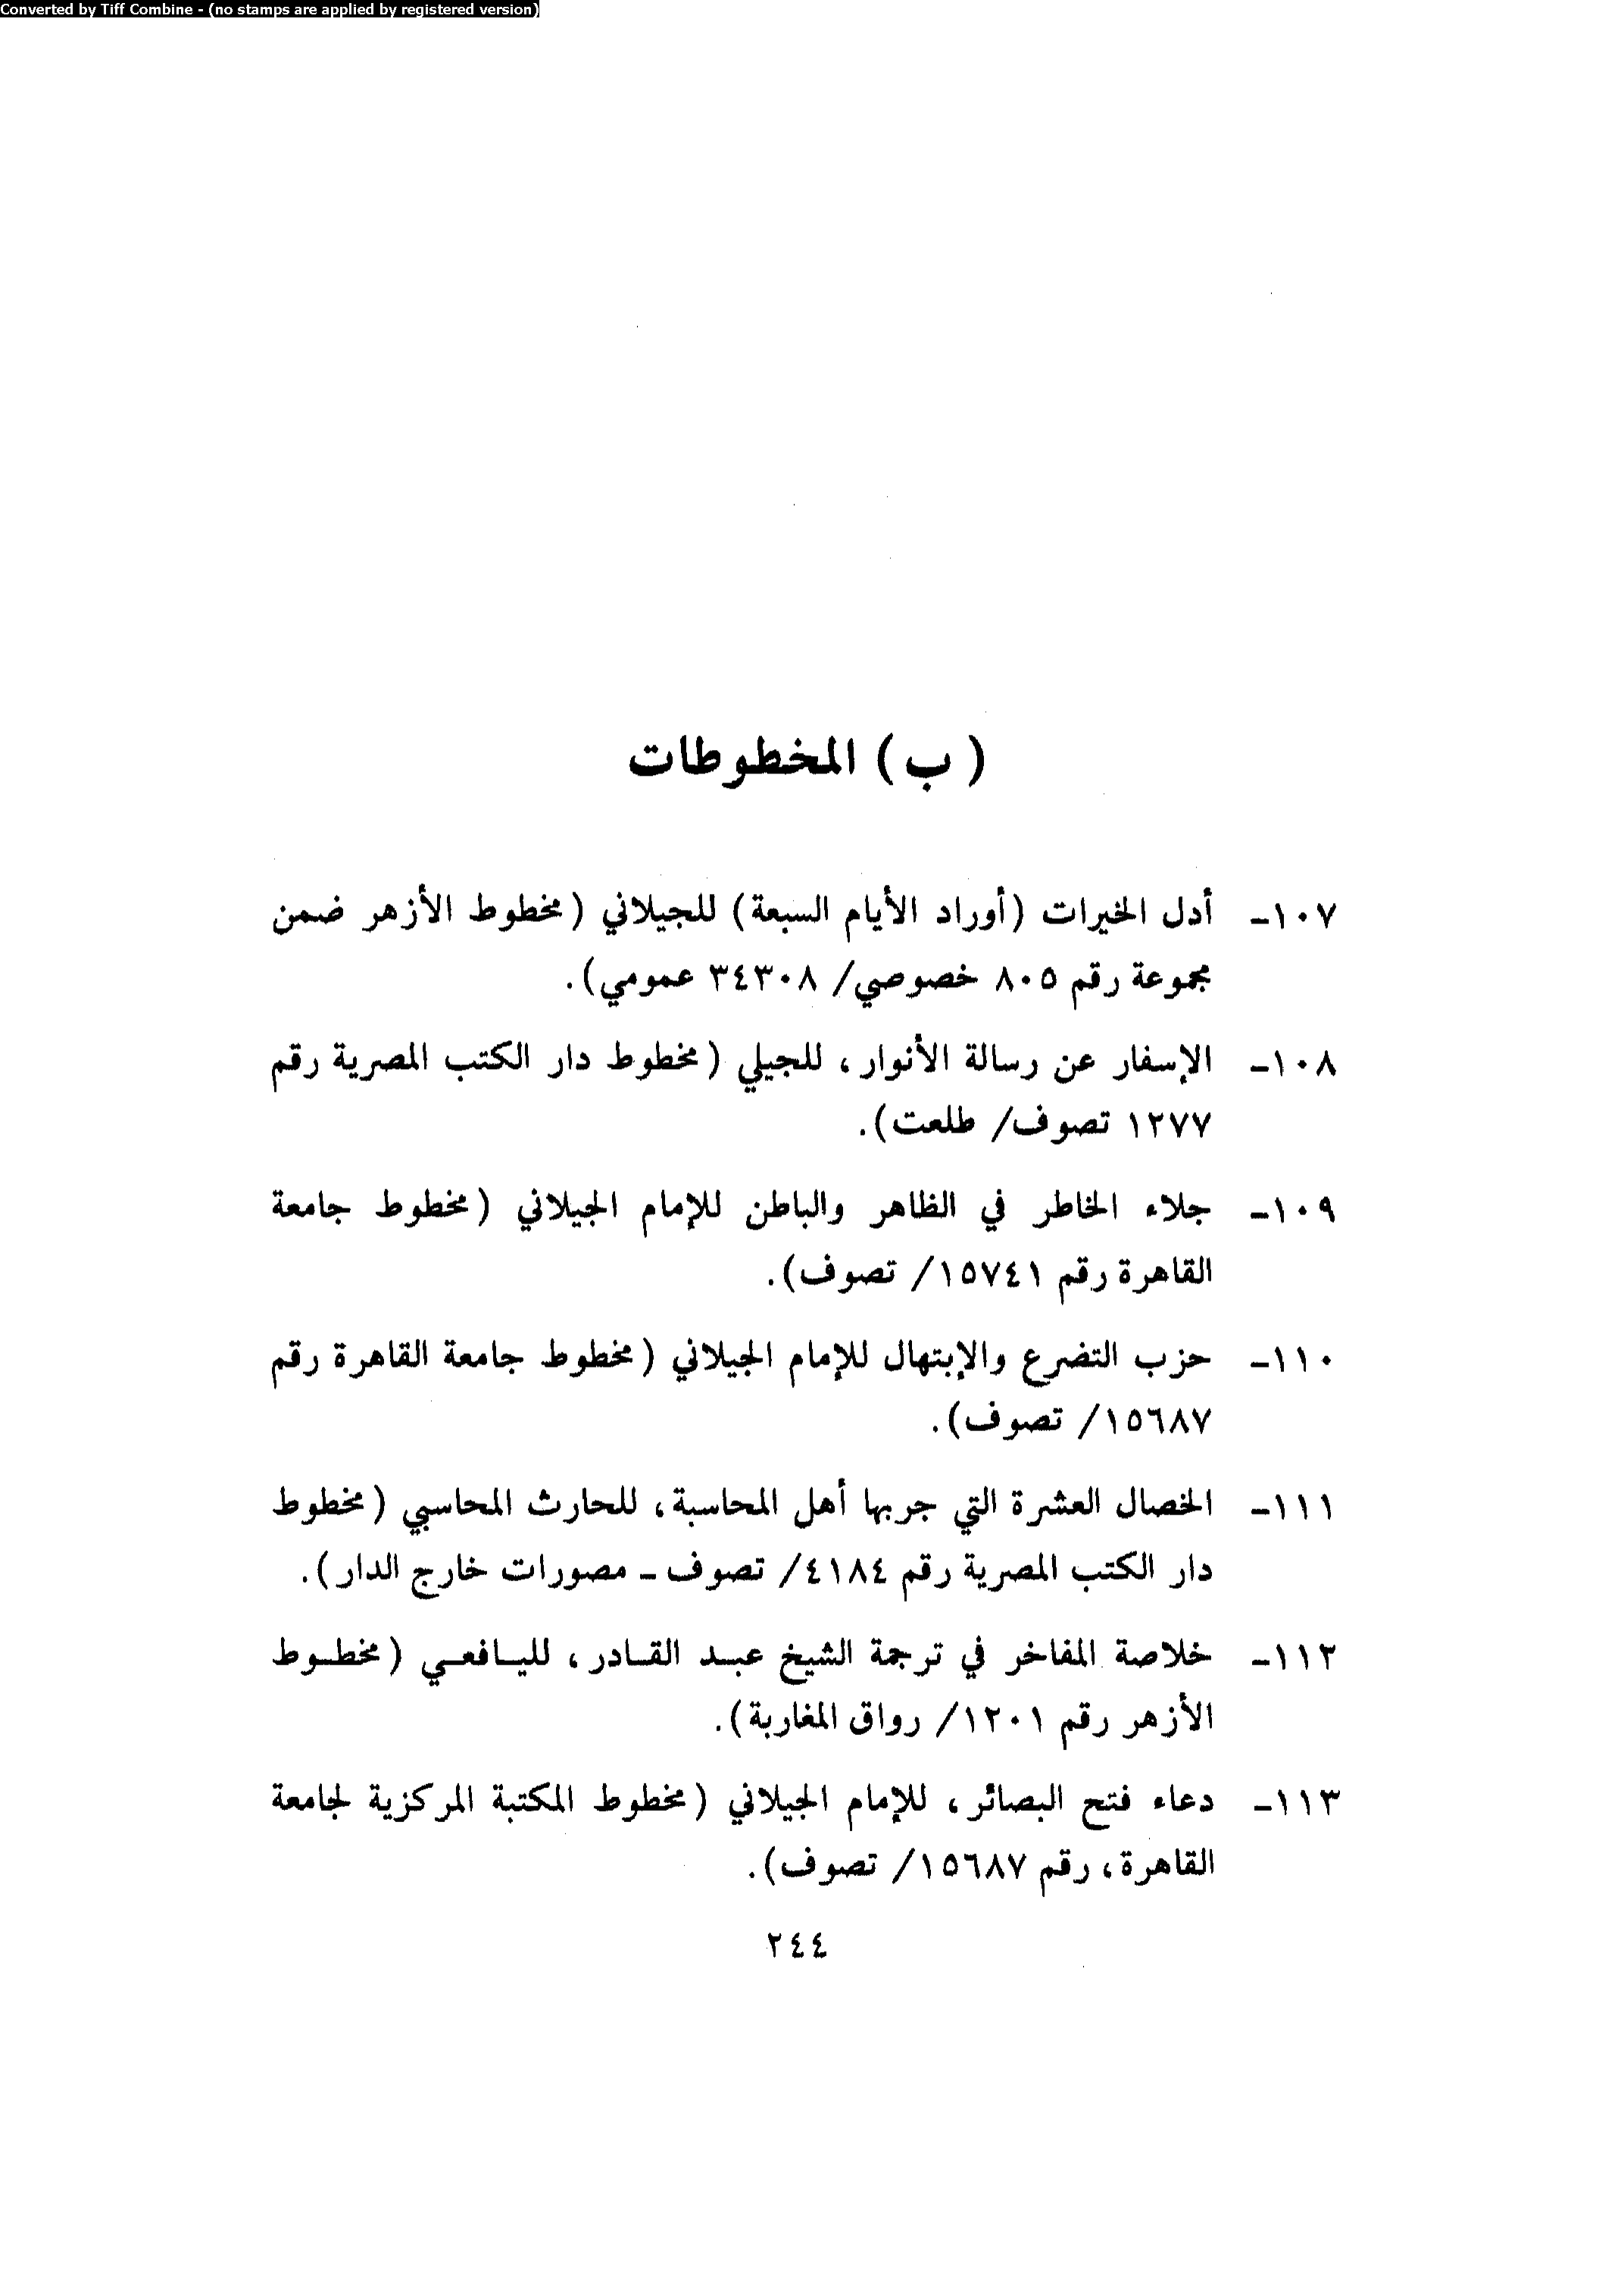 Converted by Tiff Combine - (no stamps are applied by registered version)
( ب ) المخطوطات
١٠٧- أدل الخيرات (أوراد الأيام السبعة) للجيلاني (مخطوط الأزهر ضمن
مجموعة رقم ٨٠٥ خصوصي/ ٣٤٣٠٨ عمومي).
١٠٨- الإسفار عن رسالة الأنوار، للجيلي (مخطوط دار الكتب المصرية رقم
١٢٧٧ تصوف/ طلعت).
١٠٩- جلاء الخاطر في الظاهر والباطن للإمام الجيلاني (مخطوط جامعة
القاهرة رقم ١٥٧٤١/ تصوف).
١١٠- حزب التضرع والإبتهال للإمام الجيلاني (مخطوط جامعة القاهرة رقم
١٥٦٨٧/ تصوف).
١١١- الخصال العشرة التي جربها أهل المحاسبة، للحارث المحاسبي (مخطوط
دار الكتب المصرية رقم ٤١٨٤/ تصوف - مصورات خارج الدار).
١١٢- خلاصة المفاخر في ترجمة الشيخ عبد القادر، لليافعي (مخطوط
الأزهر رقم ١٢٠١/ رواق المغاربة).
١١٣- دعاء فتح البصائر، للإمام الجيلاني (مخطوط المكتبة المركزية لجامعة
القاهرة، رقم ١٥٦٨٧/ تصوف).
٢٤٤